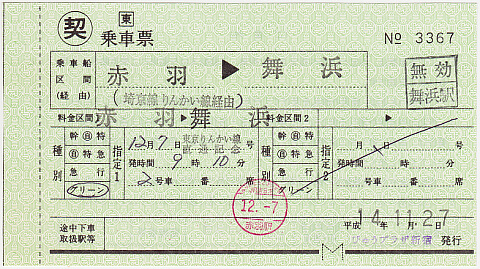 契 東 乗車票 № 3367
乗車船区間(経由) 赤羽 ▶ 舞浜
(埼京線りんかい線経由)
無効
舞浜駅
料金区間1 赤羽▶舞浜 料金区間2 ▶
種別
幹 自 特
自 特急
急行
グリーン
指定1
12月7日 東京りんかい線
直通記念
発時間 9時10分
2号車 番 席
種別
幹 自 特
自 特急
急行
グリーン
指定2
月 日
発時間 時 分
号車 番 席
12.-7
赤羽駅
途中下車
取扱駅等
平成14年11月27日
びゅうプラザ新宿 発行